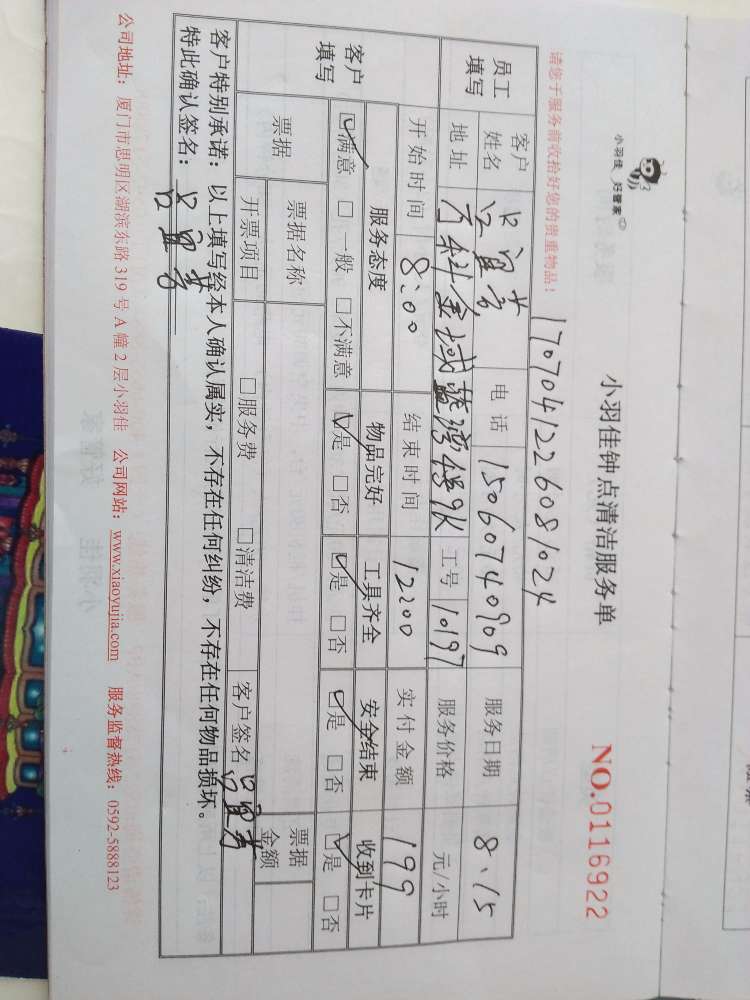 小羽佳 好管家
小羽佳钟点清洁服务单
NO.0116922
请您于服务前收拾好您的贵重物品！
1707041226081024
员工填写
客户姓名
电话 15060740909
服务日期 8.15
地址 万科金域蓝湾
工号 10197
服务价格 元/小时
开始时间 8:00
结束时间 1200
实付金额 199
客户填写
服务态度 物品完好 工具齐全 安全结束 收到卡片
☑满意 □一般 □不满意 ☑是 □否 ☑是 □否 ☑是 □否 ☑是 □否
票据 票据名称
开票项目 □服务费 □清洁费
客户签名
票据金额
客户特别承诺：以上填写经本人确认属实，不存在任何纠纷，不存在任何物品损坏。
特此确认签名：
公司地址：厦门市思明区湖滨东路 319 号 A 幢 2 层小羽佳 公司网站：www.xiaoyujia.com 服务监督热线：0592-5888123